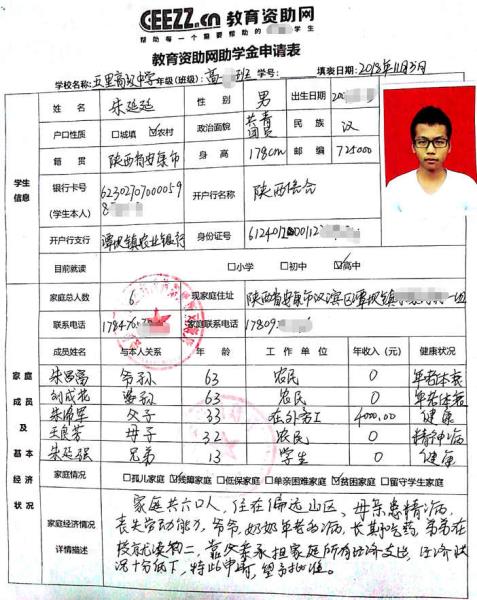 CEEZZ.cn 教育资助网
帮助每一个需要帮助的学生
教育资助网助学金申请表
学校名称: 五里高级中学 年级(班级): 高 班 学号: 填表日期: 2018年11月5日
姓名 朱延延 性别 男 出生日期
户口性质 □城镇 ☑农村 政治面貌 共青团员 民族 汉
籍贯 陕西省安康市 身高 178cm 邮编 725000
学生信息
银行卡号(学生本人) 6230270700005 98 开户行名称 陕西信合
开户行支行 谭坝镇农业银行 身份证号
目前就读 □小学 □初中 ☑高中
家庭总人数 6 现家庭住址 陕西省安康市汉滨区谭坝镇 一组
联系电话 178476 家庭联系电话 17809
成员姓名 与本人关系 年龄 工作单位 年收入(元) 健康状况
朱昌富 爷孙 63 农民 0 年老体衰
刘成花 婆孙 63 农民 0 年老体衰
父子 33 在外务工 健康
王良芳 母子 32 农民 0 精神病
朱延强 兄弟 13 学生 0 健康
家庭成员及基本经济状况
家庭情况 □孤儿家庭 ☑残障家庭 □低保家庭 □单亲困难家庭 ☑贫困家庭 □留守学生家庭
家庭经济情况详情描述
家庭共六口人,住在偏远山区、母亲患精神病,
丧失劳动能力,爷爷,奶奶年老多病,长期吃药,弟弟在
校就读初二,靠父亲承担家庭所有经济支出,经济状
况十分低下,特此申请,望予批准。